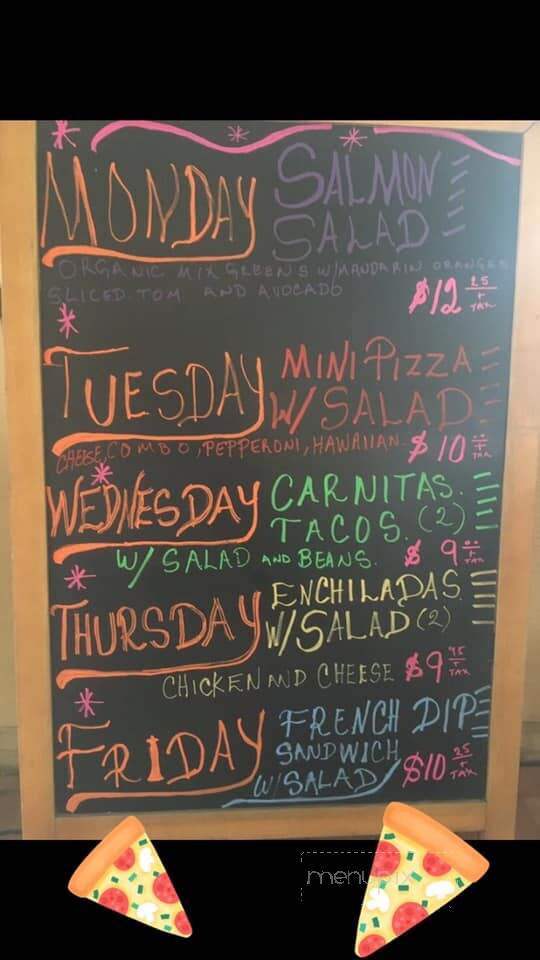 MONDAY SALMON
SALAD
ORGANIC MIX GREENS W/MANDARIN ORANGES
SLICED TOM AND AVOCADO $12 25 + TAX
TUESDAY MINI PIZZA
W/ SALAD
CHEESE, COMBO, PEPPERONI, HAWAIIAN $10 + TAX
WEDNESDAY CARNITAS
TACOS (2)
W/ SALAD AND BEANS. $9 + TAX
THURSDAY ENCHILADAS
W/SALAD (2)
CHICKEN AND CHEESE $9 + TAX
FRIDAY FRENCH DIP
SANDWICH
W/SALAD $10 25 + TAX
menupix